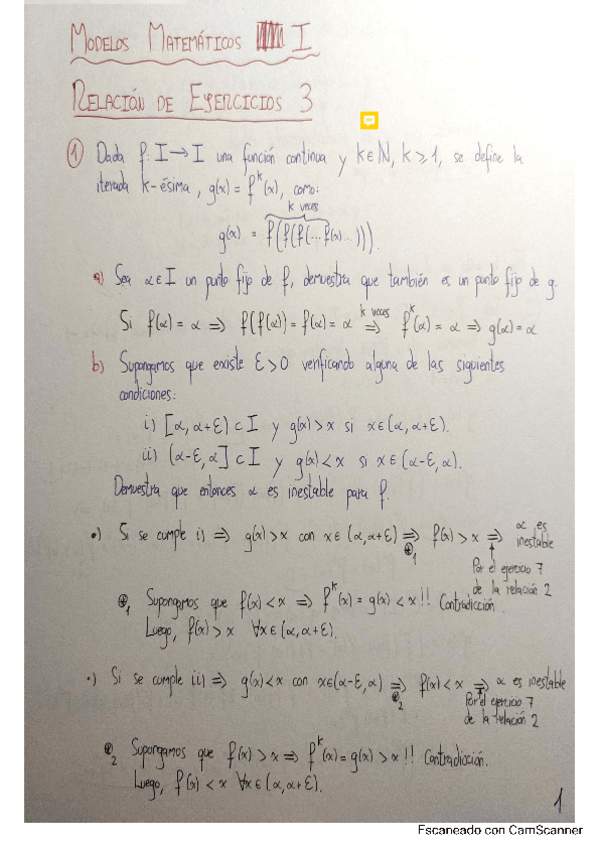 MODELOS MATEMÁTICOS I
RELACIÓN DE EJERCICIOS 3
① Dada f: I → I una función continua y k∈ℕ, k≥1, se define la
iterada k-ésima, g(x) = f^k(x), como:
k veces
g(x) = f(f(f(...f(x)...))).
a) Sea α∈I un punto fijo de f, demuestra que también es un punto fijo de g.
Si f(α) = α ⟹ f(f(α)) = f(α) = α ⟹ (k veces) f^k(α) = α ⟹ g(α) = α
b) Supongamos que existe ε>0 verificando alguna de las siguientes
condiciones:
i) [α, α+ε) ⊂ I y g(x) > x si x∈(α, α+ε).
ii) (α-ε, α] ⊂ I y g(x) < x si x∈(α-ε, α).
Demuestra que entonces α es inestable para f.
•) Si se cumple i) ⟹ g(x) > x con x∈(α, α+ε) ⟹ ⊛₁ f(x) > x ⟹ α es
inestable
Por el ejercicio 7
de la relación 2
⊛₁ Supongamos que f(x) < x ⟹ f^k(x) = g(x) < x !! Contradicción.
Luego, f(x) > x ∀x∈(α, α+ε).
•) Si se cumple ii) ⟹ g(x) < x con x∈(α-ε, α) ⟹ ⊛₂ f(x) < x ⟹ α es inestable
Por el ejercicio 7
de la relación 2
⊛₂ Supongamos que f(x) > x ⟹ f^k(x) = g(x) > x !! Contradicción.
Luego, f(x) < x ∀x∈(α, α+ε).
1
Escaneado con CamScanner